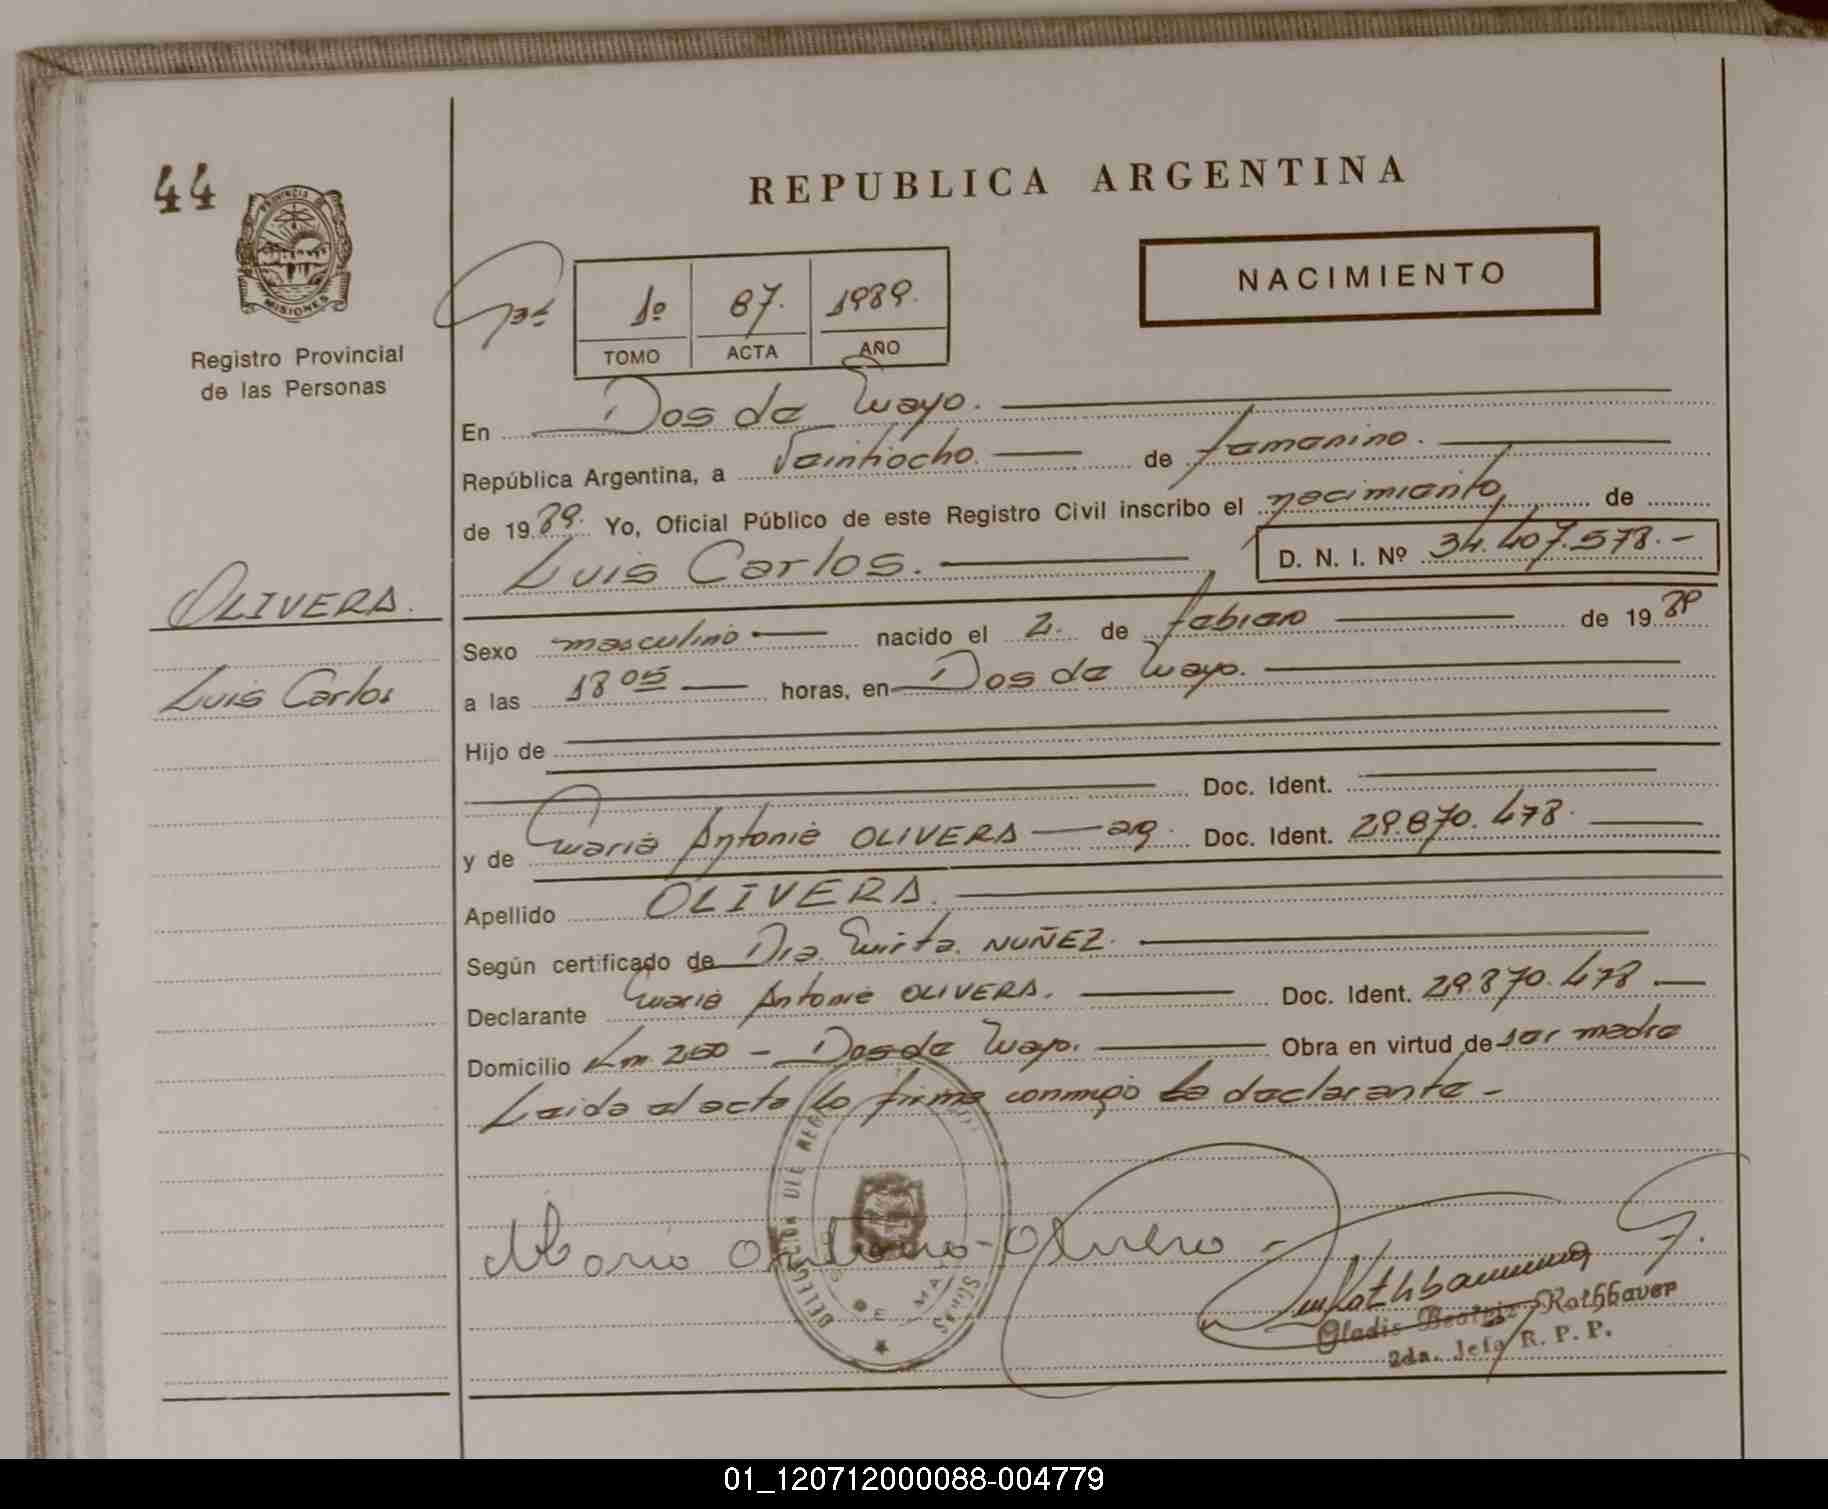 44
REPUBLICA ARGENTINA
PROVINCIA DE
MISIONES
Registro Provincial
de las Personas
NACIMIENTO
1º 87. 1989.
TOMO ACTA AÑO
En Dos de Mayo.
República Argentina, a Veintiocho. de femenino.
de 1989. Yo, Oficial Público de este Registro Civil inscribo el nacimiento, de
Luis Carlos. D. N. I. Nº 34.407.578.-
OLIVERA.
Luis Carlos
Sexo masculino nacido el 2. de febrero de 1989
a las 18 05 horas, en Dos de Mayo.
Hijo de
Doc. Ident.
y de María Antonia OLIVERA arg. Doc. Ident. 29.870.478.
Apellido OLIVERA.
Según certificado de Dra. Mirta. NUÑEZ.
Declarante María Antonia OLIVERA. Doc. Ident. 29.870.478
Domicilio Km 260 - Dos de Mayo. Obra en virtud de ser madre
Leida el acta lo firma conmigo la declarante -
DELEGACIÓN DEL
Maria Olivera -
Gladis Beatriz Rothbaver
2da. Jefa R. P. P.
01_120712000088-004779